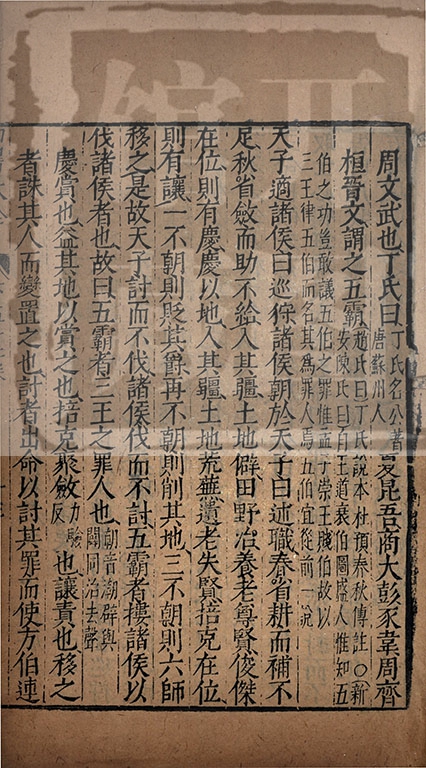 周文武也丁氏曰丁氏名公著唐蘇州人夏昆吾商大彭豕韋周齊
桓晉文謂之五霸趙氏曰丁氏說本杜預春秋傳註○新安陳氏曰自王道衰伯圖盛人惟知五
伯之功豈敢議五伯之罪惟孟子崇王賤伯故以
三王律五伯而名其為罪人焉五伯宜從前一說
天子適諸侯曰巡狩諸侯朝於天子曰述職春省耕而補不
足秋省斂而助不給入其疆土地辟田野治養老尊賢俊傑
在位則有慶慶以地入其疆土地荒蕪遺老失賢掊克在位
則有讓一不朝則貶其爵再不朝則削其地三不朝則六師
移之是故天子討而不伐諸侯伐而不討五霸者摟諸侯以
伐諸侯者也故曰五霸者三王之罪人也朝音潮辟與闢同治去聲
慶賞也益其地以賞之也掊克聚斂力驗反也讓責也移之
者誅其人而變置之也討者出命以討其罪而使方伯連